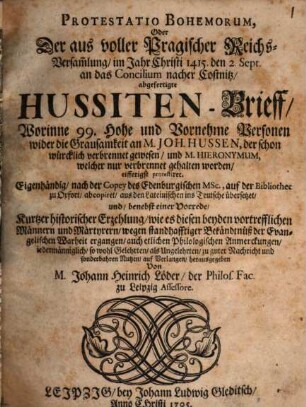 PROTESTATIO BOHEMORUM,
Oder
Der aus voller Pragischer Reichs-
Versamlung / im Jahr Christi 1415. den 2 Sept.
an das Concilium nacher Costnitz /
abgefertigte
HUSSITEN-Brieff /
Worinne 99. Hohe und Vornehme Personen
wider die Grausamkeit an M. JOH. HUSSEN, der schon
würcklich verbrennet gewesen / und M. HIERONYMUM,
welcher nur verbrennet gehalten worden /
eifferigst protestiret.
Eigenhändig / nach der Copey des Edenburgischen MSc. , auf der Bibliothec
zu Oxfort / abcopiret / aus den Lateinischen ins Teutsche übersetzet /
und / benebst einer Vorrede /
Kurtzer historischer Erzehlung / wie es diesen beyden vortrefflichen
Männern und Märtyrern / wegen standhafftiger Bekäntnüß der Evan-
gelischen Warheit ergangen / auch etlichen Philologischen Anmerckungen /
iedermänniglich / so wohl Gelehrten / als Ungelehrten / zu guter Nachricht und
sonderbahren Nutzen / auf Verlangen / herausgegeben
Von
M. Johann Heinrich Löder / der Philos. Fac.
zu Leipzig Assessore.
LEIPZIG / bey Johann Ludwig Gleditsch /
Anno Christi 1705.